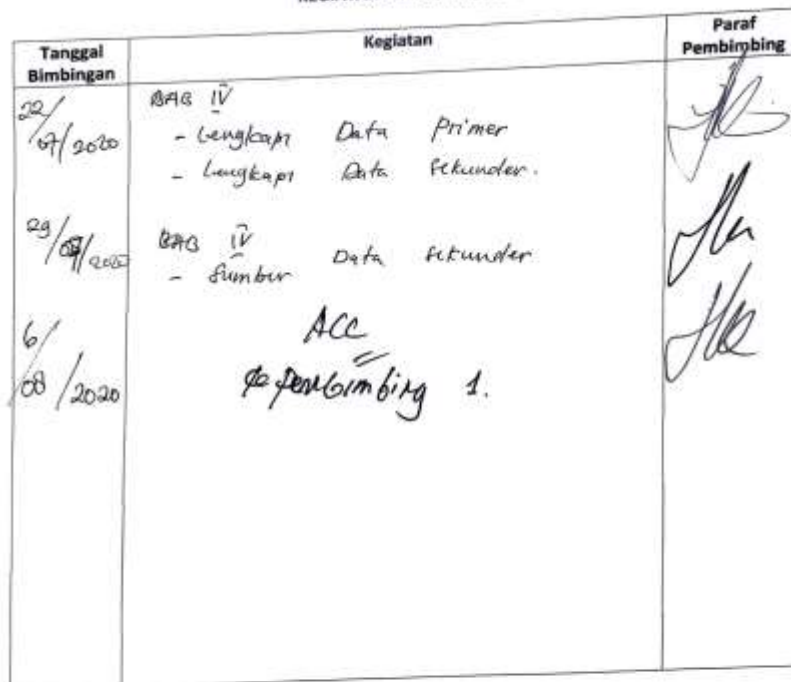 Tanggal Bimbingan Kegiatan Paraf Pembimbing
22/07/2020 BAB IV
- Lengkapi Data Primer
- Lengkapi Data Sekunder.
29/07/2020 BAB IV
- Sumber Data Sekunder
6/08/2020 ACC
ke Pembimbing 1.